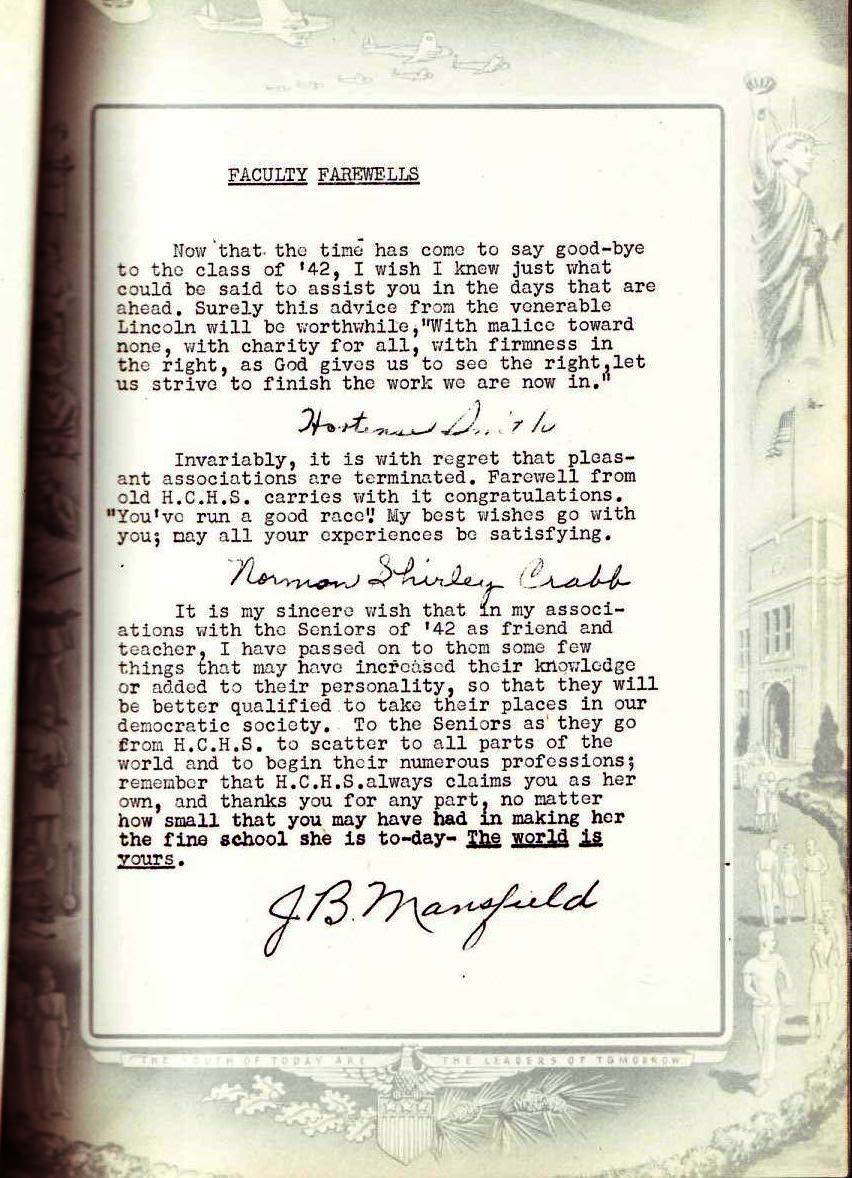 FACULTY FAREWELLS
Now that the time has come to say good-bye
to the class of '42, I wish I knew just what
could be said to assist you in the days that are
ahead. Surely this advice from the venerable
Lincoln will be worthwhile,"With malice toward
none, with charity for all, with firmness in
the right, as God gives us to see the right,let
us strive to finish the work we are now in."
Hortense Smith
Invariably, it is with regret that pleas-
ant associations are terminated. Farewell from
old H.C.H.S. carries with it congratulations.
"You've run a good race"! My best wishes go with
you; may all your experiences be satisfying.
Norman Shirley Crabb
It is my sincere wish that in my associ-
ations with the Seniors of '42 as friend and
teacher, I have passed on to them some few
things that may have increased their knowledge
or added to their personality, so that they will
be better qualified to take their places in our
democratic society. To the Seniors as they go
from H.C.H.S. to scatter to all parts of the
world and to begin their numerous professions;
remember that H.C.H.S.always claims you as her
own, and thanks you for any part, no matter
how small that you may have had in making her
the fine school she is to-day- The world is
yours.
J.B. Mansfield
THE YOUTH OF TODAY ARE THE LEADERS OF TOMORROW